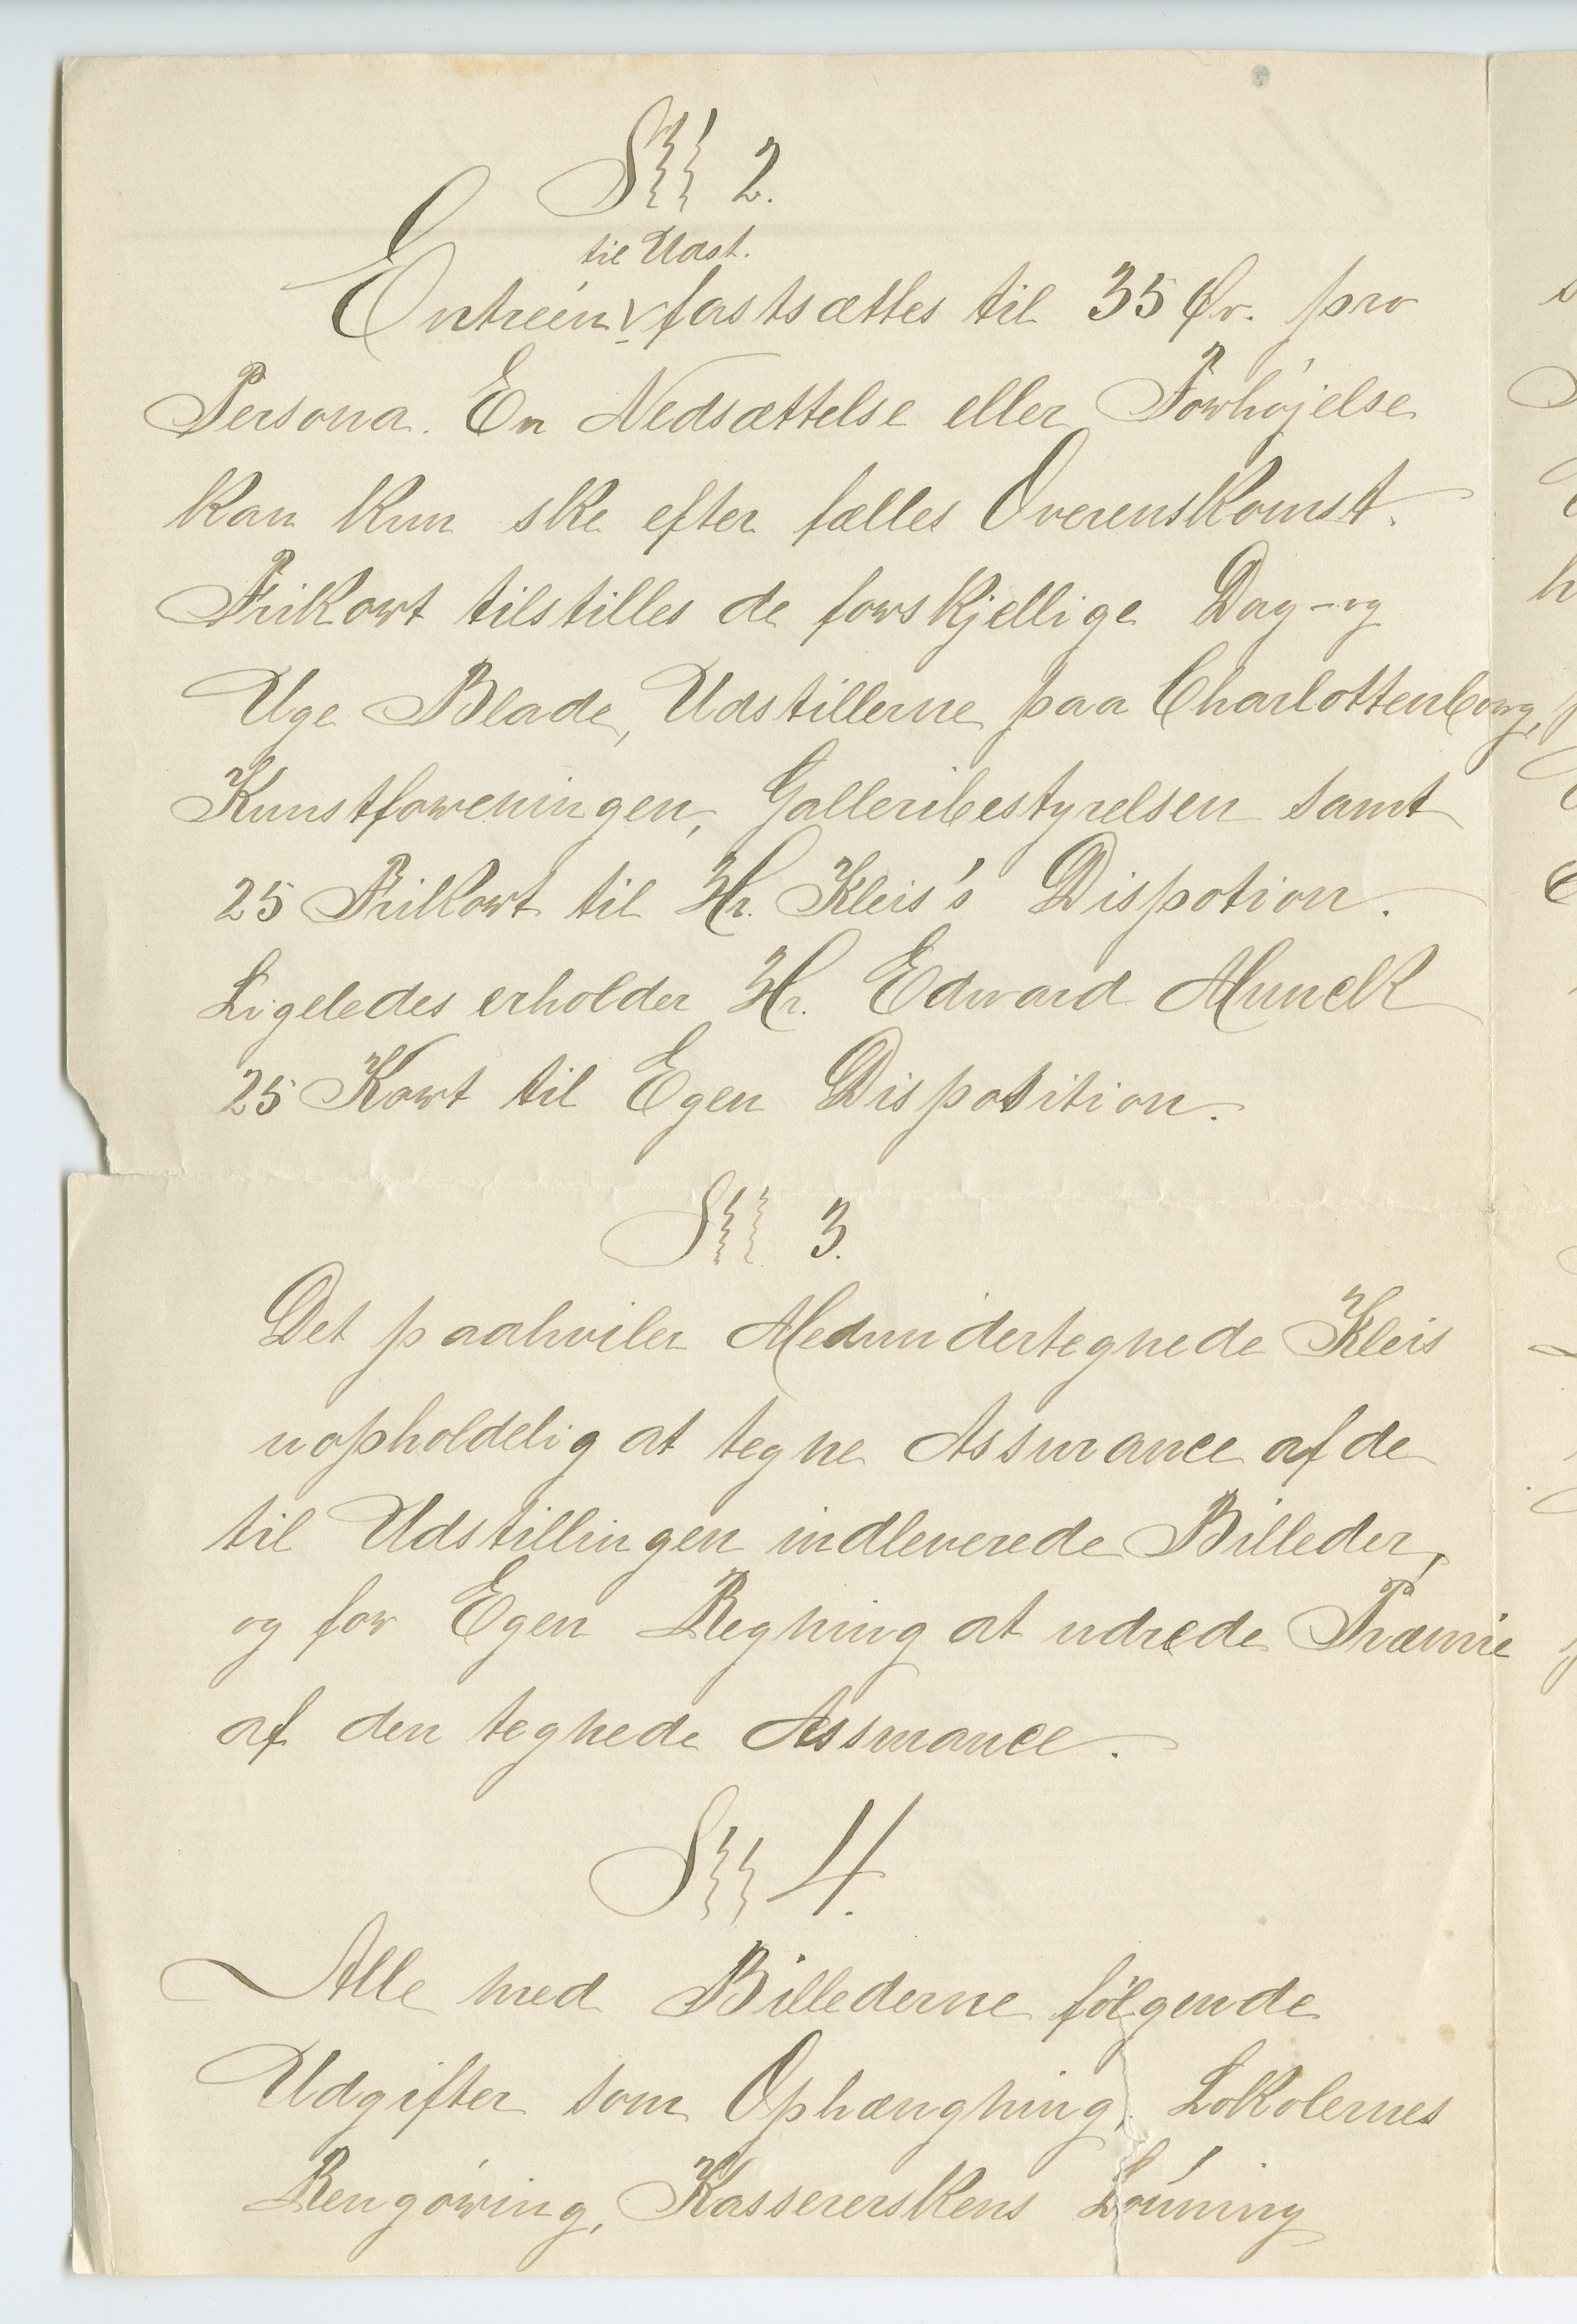 §§§ 2.
til Udst.
Entréen fastsættes til 35 Ør. pro
Persona. En Nedsættelse eller Forhøjelse
kan kun ske efter fælles Overenskomst.
Frikort tilstilles de forskjellige Dag- og
Uge Blade, Udstillerne paa Charlottenborg,
Kunstforeningen, Galleribestyrelsen samt
25 Frikort til Hr. Kleis's Dispotion.
Ligeledes erholder Hr. Edward Munck
25 Kort til Egen Disposition.
§§§ 3.
Det paahviler Medundertegnede Kleis
uopholdelig at tegne Assurance af de
til Udstillingen indleverede Billeder,
og for Egen Regning at udrede Præmie
af den tegnede Assurance.
§§§ 4.
Alle med Billederne følgende
Udgifter som Ophængning, Lokalernes
Rengøring, Kassererskens Lønning